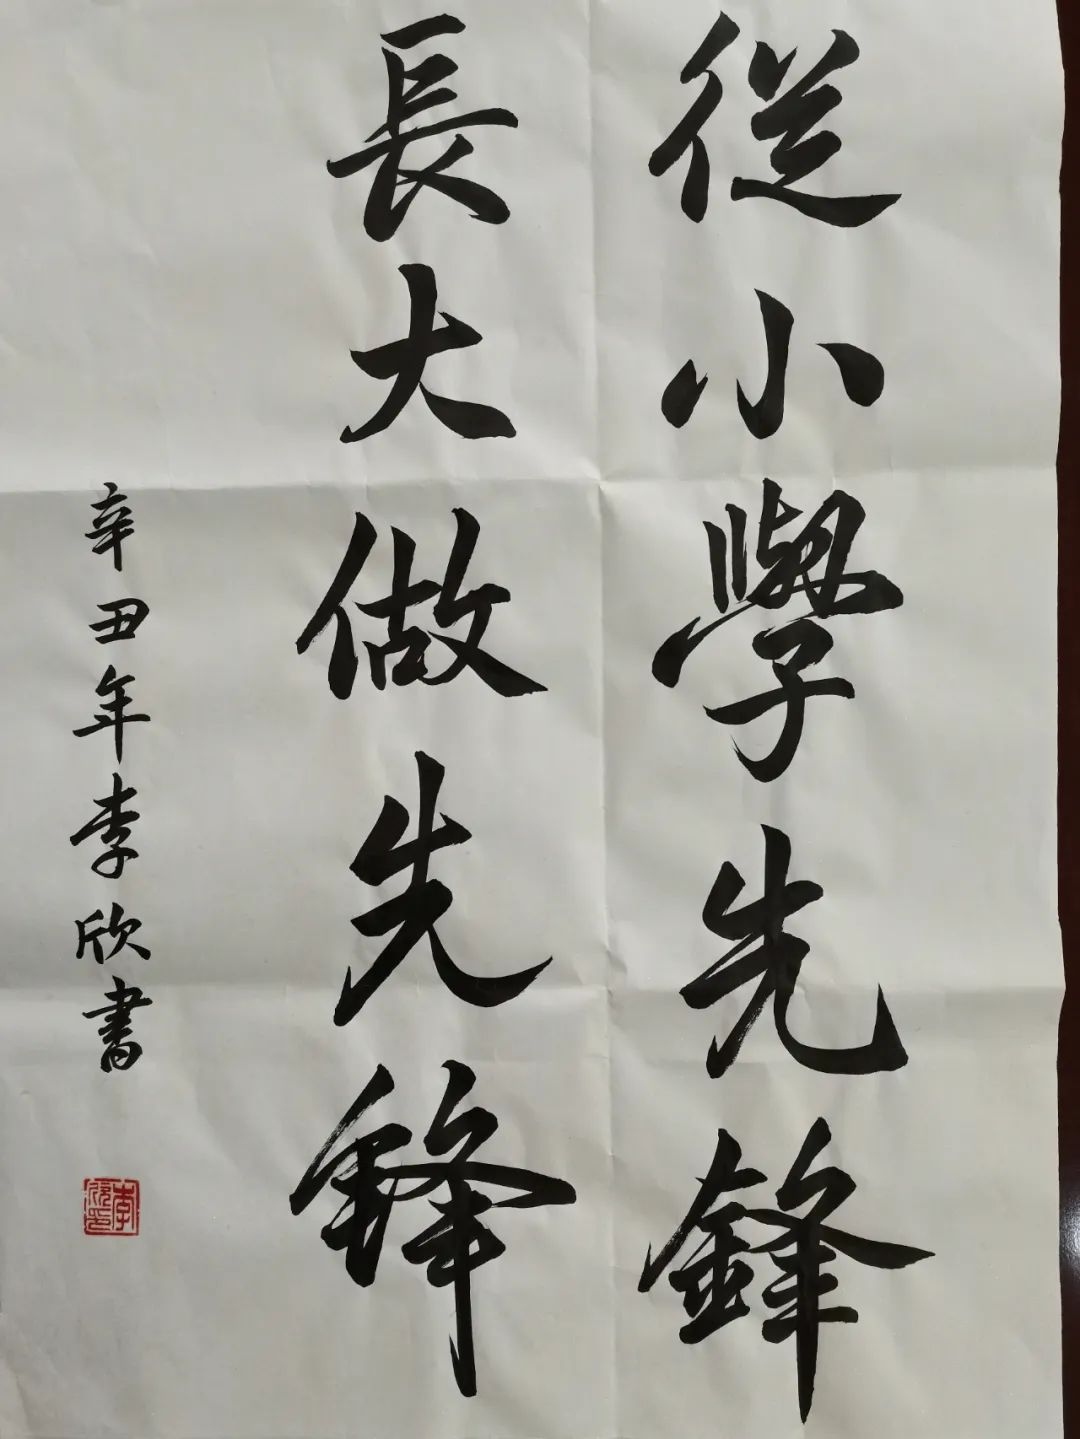 從小學先鋒
長大做先鋒
辛丑年李欣書